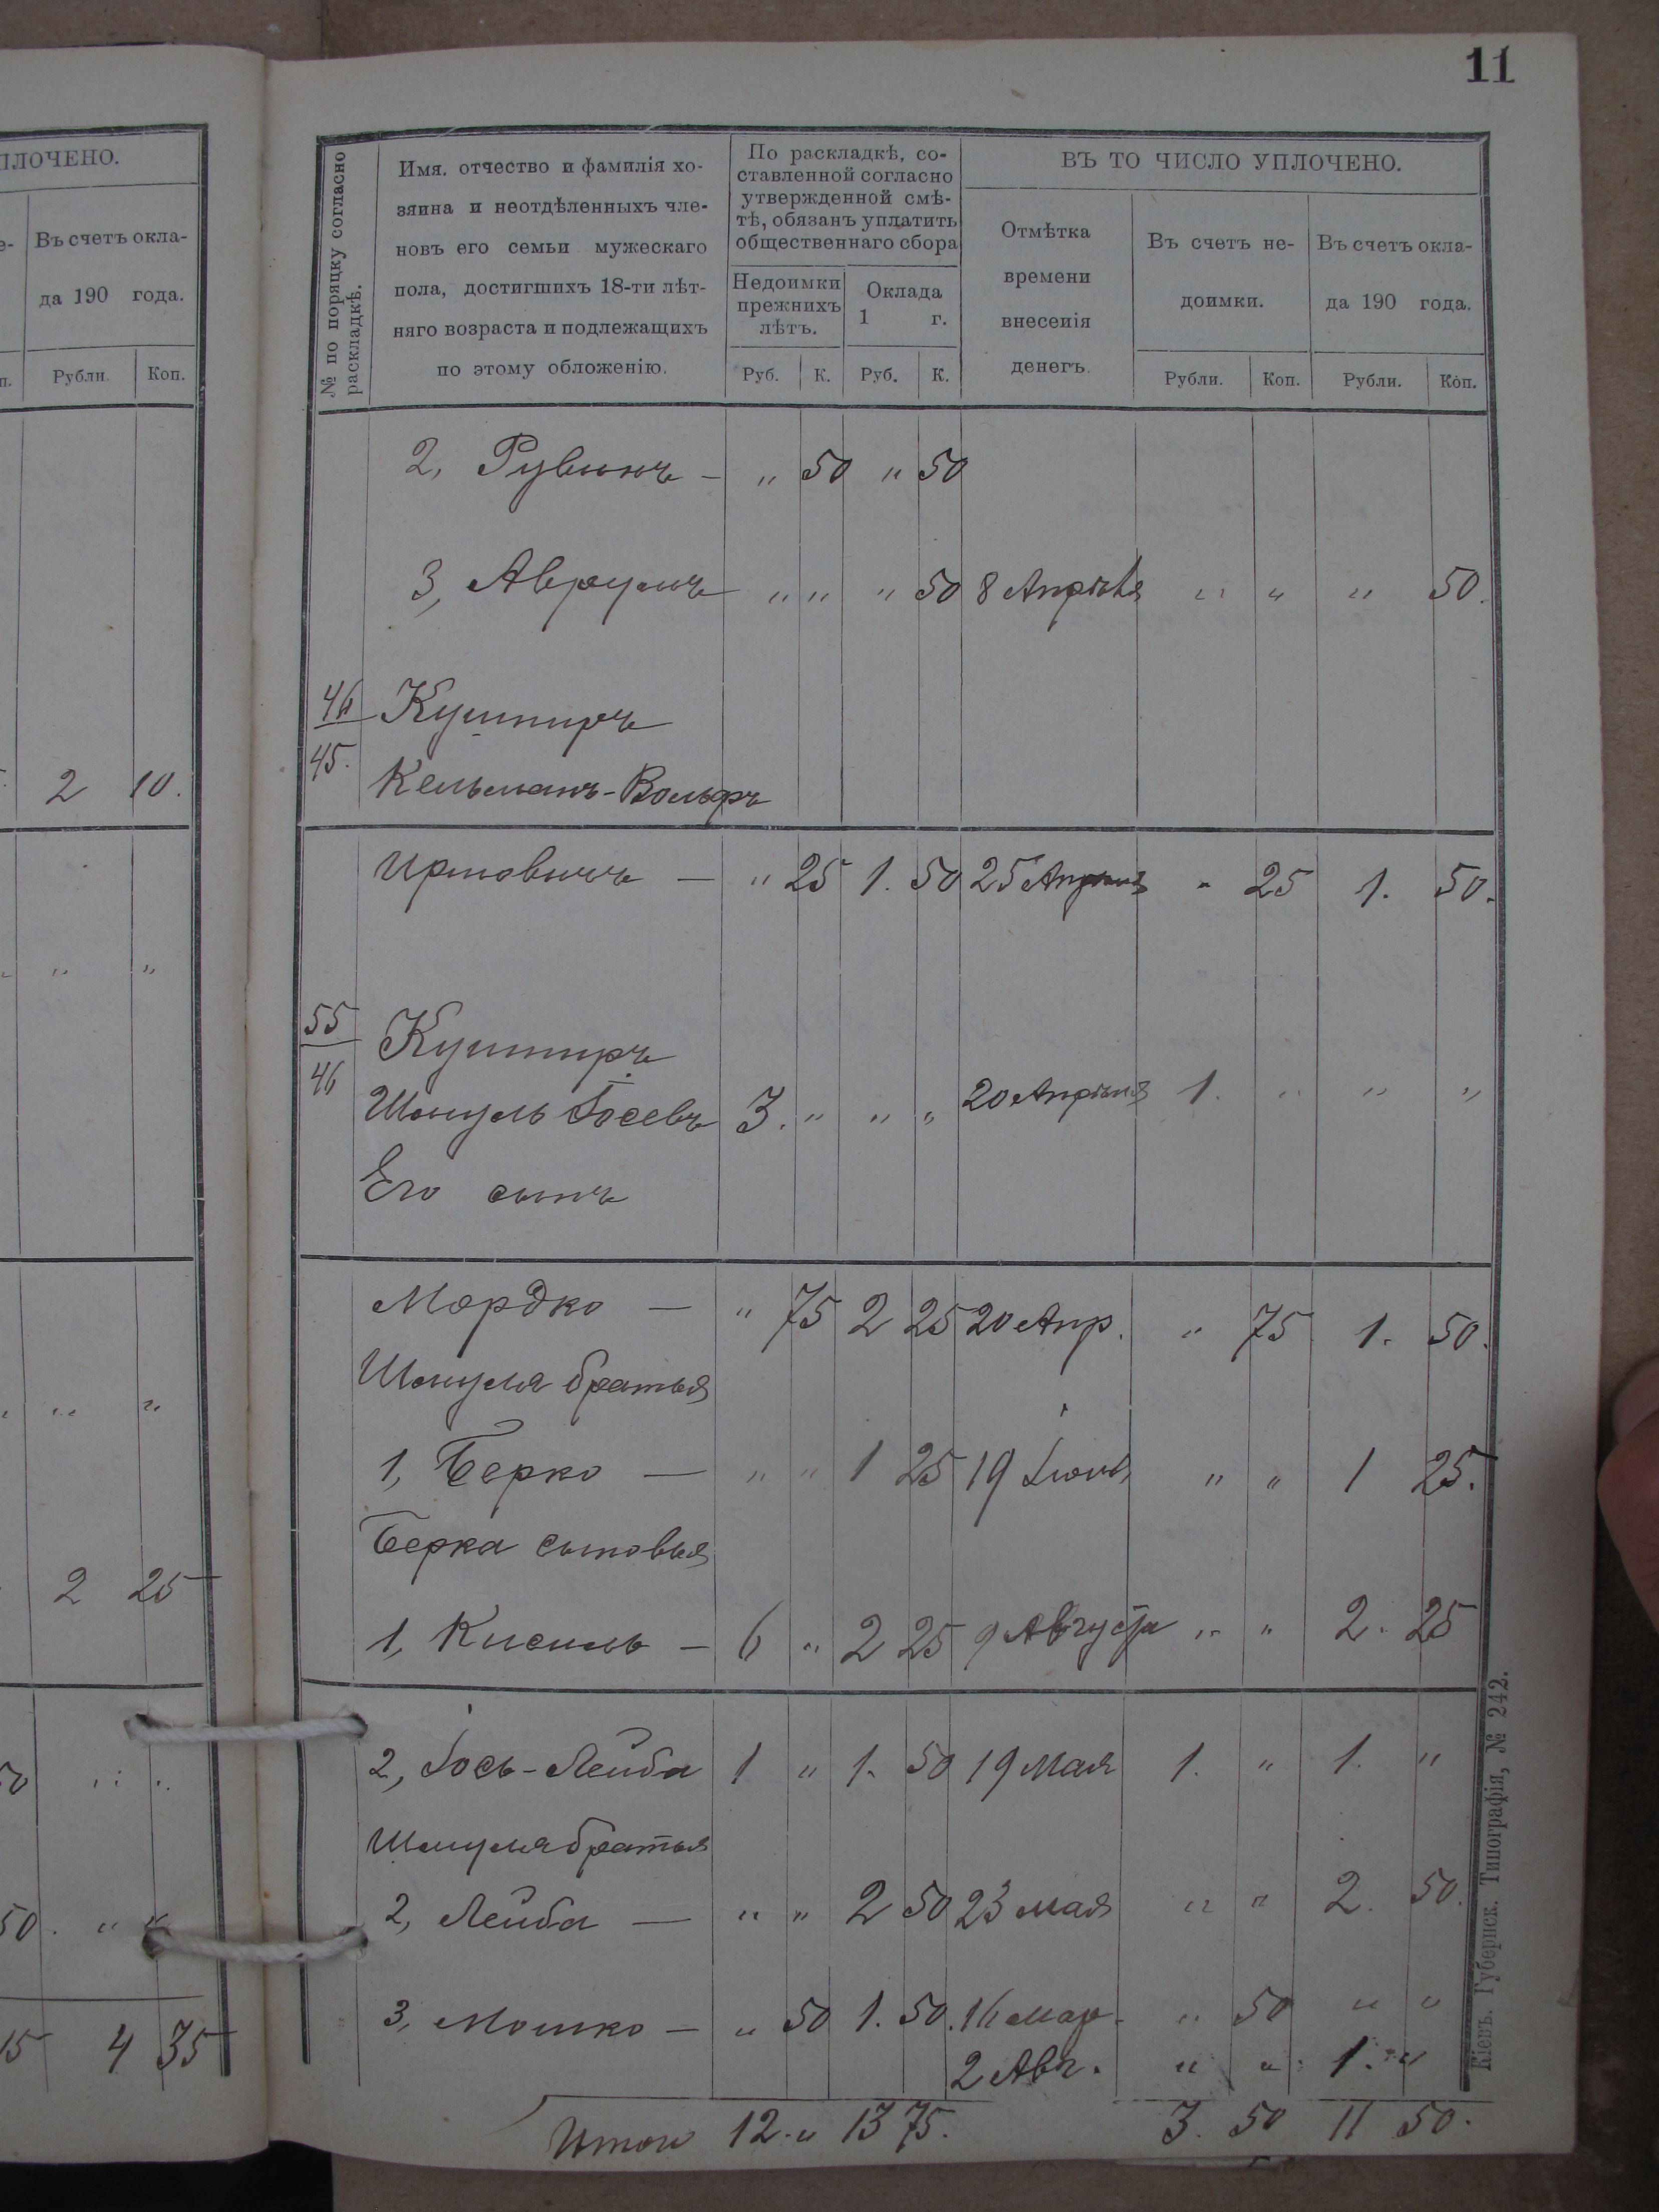 11
ПЛОЧЕНО.
Въ счетъ окла-
да 190 года.
Рубли. Коп.
2 10.
" "
" "
2 25
50 " "
50. " "
15 4 35
№ по порядку согласно
раскладкѣ.
Имя. отчество и фамилія хо-
зяина и неотдѣленныхъ чле-
новъ его семьи мужескаго
пола, достигшихъ 18-ти лѣт-
няго возраста и подлежащихъ
по этому обложенію.
По раскладкѣ, со-
ставленной согласно
утвержденной смѣ-
тѣ, обязанъ уплатить
общественнаго сбора
Недоимки
прежнихъ
лѣтъ.
Оклада
1 г.
Руб. К. Руб. К.
ВЪ ТО ЧИСЛО УПЛОЧЕНО.
Отмѣтка
времени
внесенія
денегъ.
Въ счетъ не-
доимки.
Рубли. Коп.
Въ счетъ окла-
да 190 года.
Рубли. Коп.
2, Рувинъ — " 50 " 50
3, Аврумъ " " " 50 8 Апрѣля " " " 50.
46 Кушниръ
45. Кельманъ-Вольфъ
Ицковичъ — " 25 1. 50 25 Апрѣля " 25 1. 50.
55 Кушниръ
46 Шмуль Іосевъ 3. " " " 20 Апрѣля 1. " " "
Его сынъ
Мордко — " 75 2 25 20 Апр. " 75 1. 50.
Шмуля братья
1, Берко — " " 1 25 19 Іюнь " " 1 25.
Берка сыновья
1, Кисиль — 6 " 2 25 9 Августа " " 2. 25
2, Іось-Лейба 1 " 1. 50 19 Мая 1. " 1. "
Шмуля братья
2, Лейба — " " 2 50 23 мая " " 2. 50.
3, Мошко — " 50 1. 50. 16 мар. " 50 " "
2 Авг. " " 1. "
Итого 12. " 13 75. 3. 50 11 50.
Кіевъ. Губернск. Типографія, № 242.